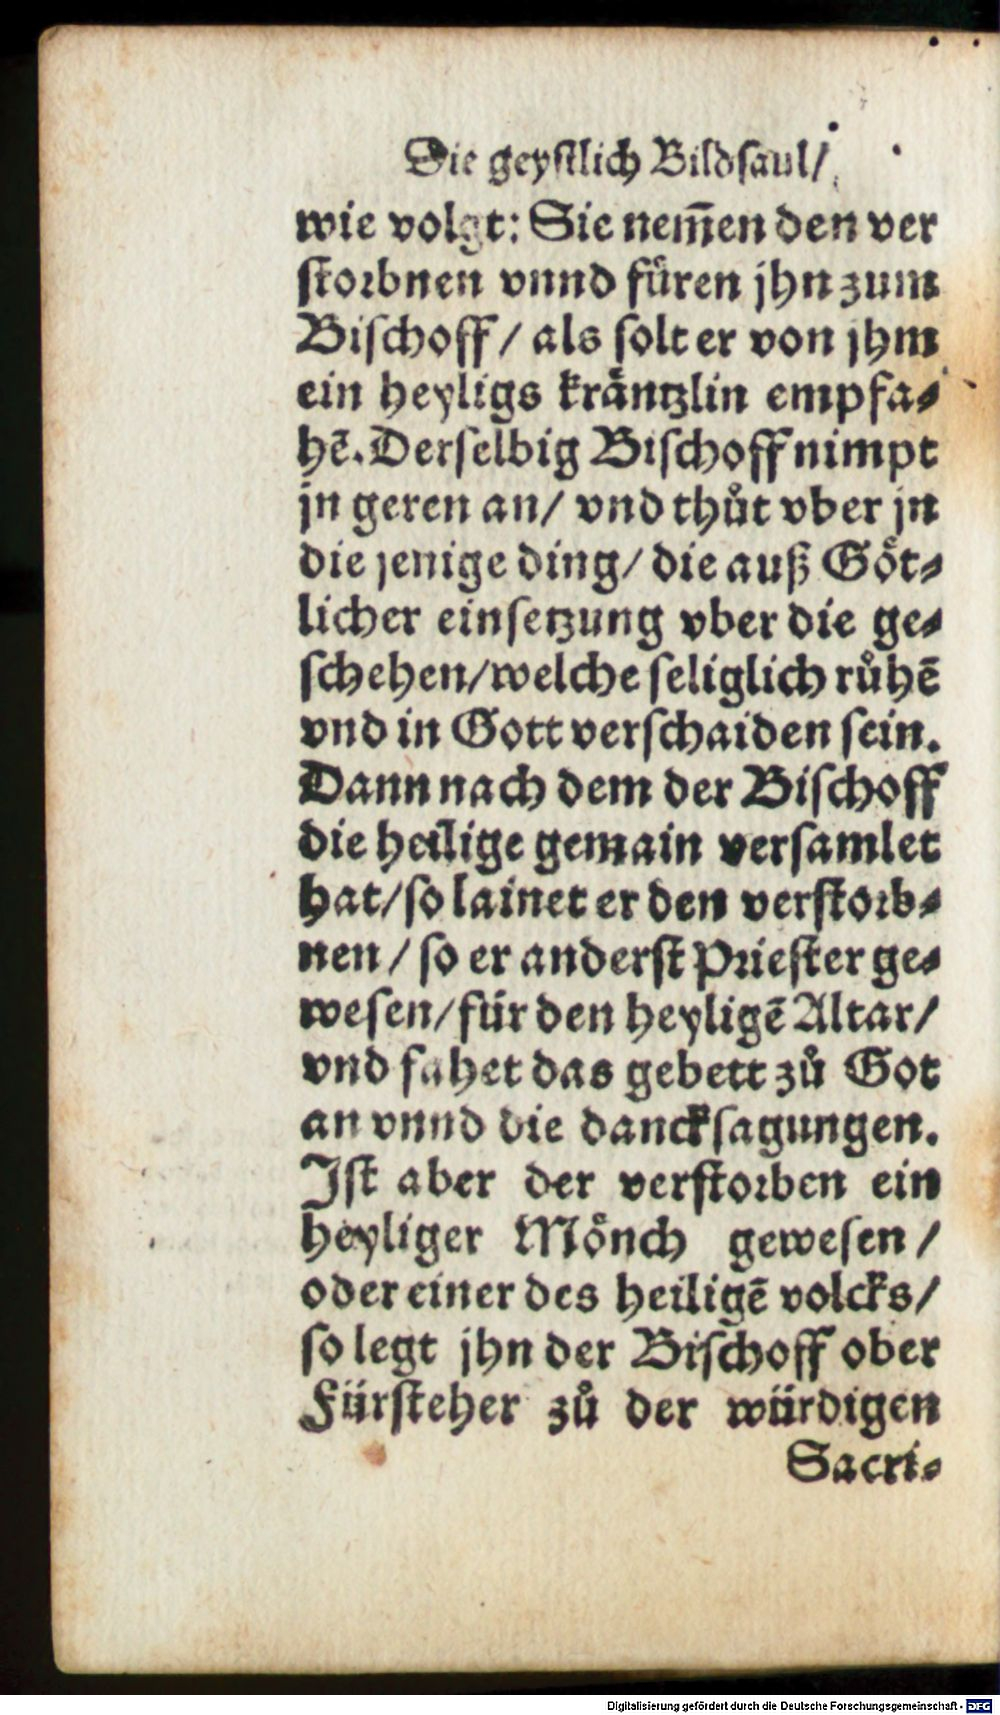 Die geyſtlich Bildſaul/
wie volgt: Sie nem̃en den ver
ſtorbnen vnnd fuͤren jhn zum
Biſchoff / als ſolt er von jhm
ein heyligs kraͤntzlin empfa⸗
hẽ. Derſelbig Biſchoff nimpt
jn geren an/ vnd thuͦt vber jn
die jenige ding/ die auß Goͤt⸗
licher einſetzung vber die ge⸗
ſchehen/welche ſeliglich ruͦhẽ
vnd in Gott verſchaiden ſein.
Dann nach dem der Biſchoff
die heilige gemain verſamlet
hat/ſo lainet er den verſtorb⸗
nen / ſo er anderſt Prieſter ge⸗
weſen/für den heyligẽ Altar/
vnd fahet das gebett zuͦ Got
an vnnd die danckſagungen.
Iſt aber der verſtorben ein
heyliger Moͤnch geweſen /
oder einer des heiligẽ volcks/
ſo legt jhn der Biſchoff ober
Fürſteher zuͦ der würdigen
Sacri⸗
Digitalisierung gefördert durch die Deutsche Forschungsgemeinschaft - DFG